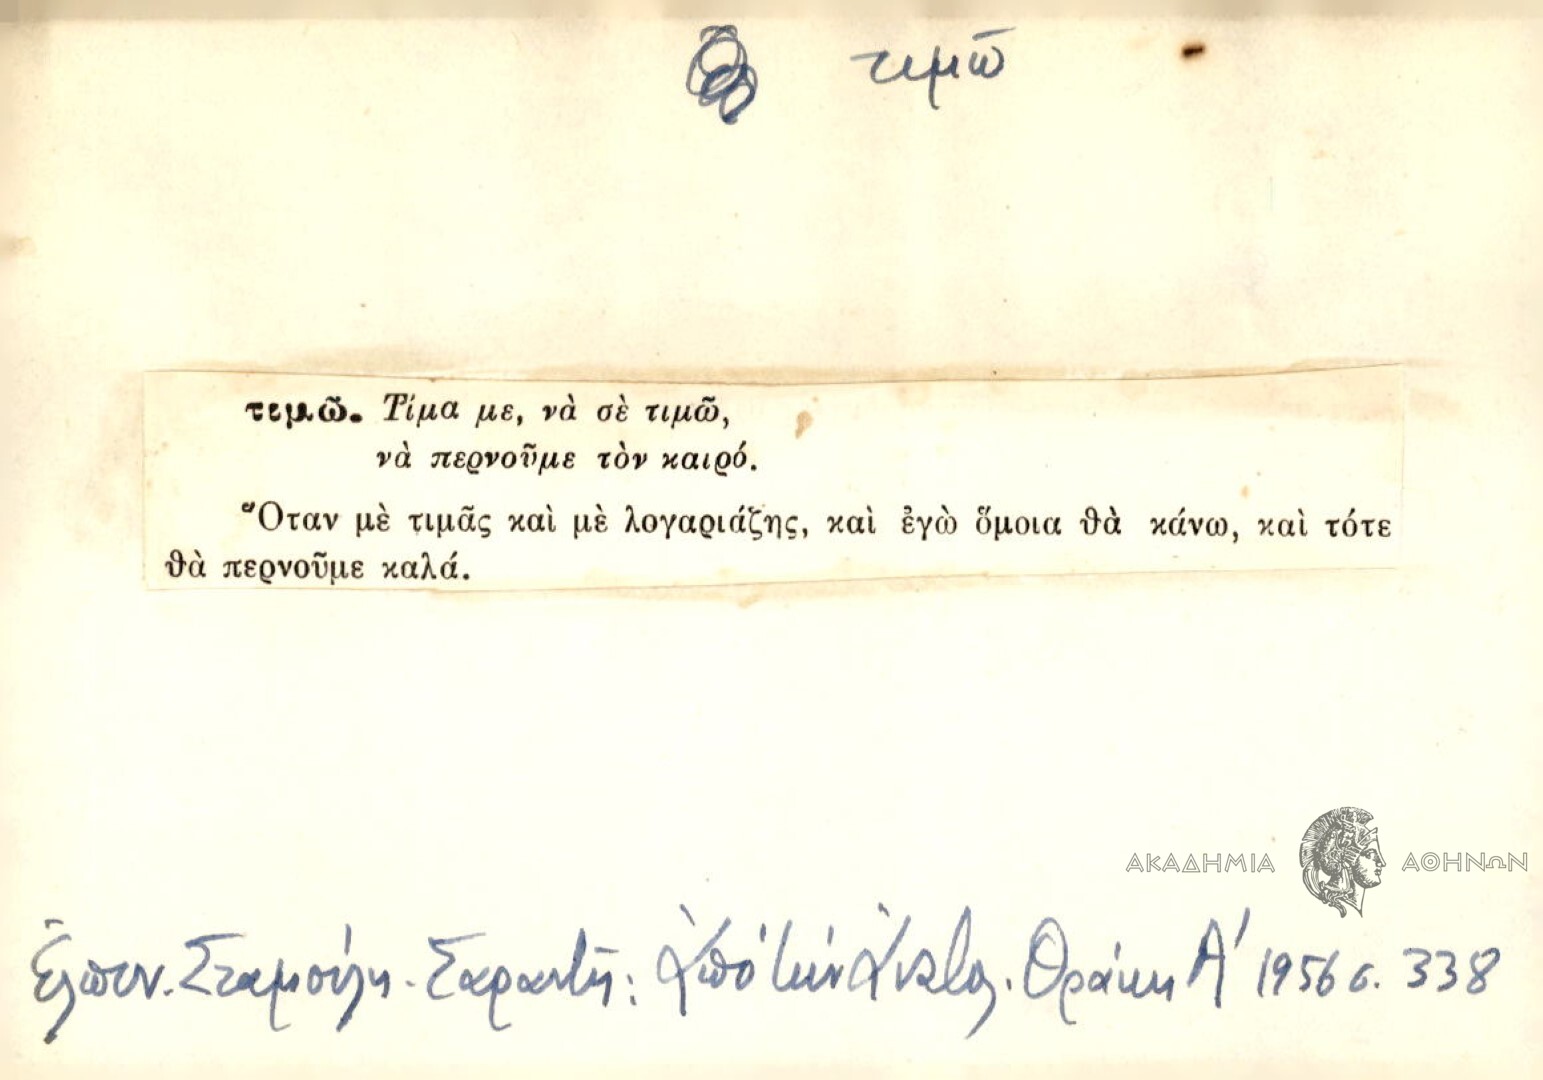 τιμῶ
τιμῶ. Τίμα με, νὰ σὲ τιμῶ,
νὰ περνοῦμε τὸν καιρό.
Ὅταν μὲ τιμᾶς καὶ μὲ λογαριάζῃς, καὶ ἐγὼ ὅμοια θὰ κάνω, καὶ τότε
θὰ περνοῦμε καλά.
ΑΚΑΔΗΜΙΑ ΑΘΗΝΩΝ
Ἐλπιν. Σταμούλη - Σαραντῆ: Ἀπὸ τὴν Ἀνατολ. Θράκη Α' 1956 σ. 338